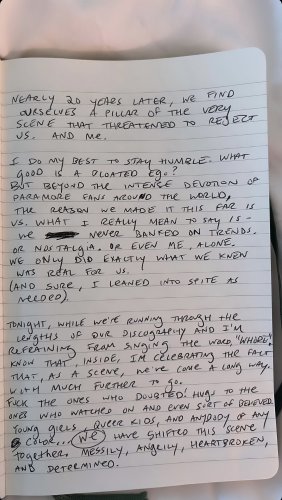 NEARLY 20 YEARS LATER, WE FIND
OURSELVES A PILLAR OF THE VERY
SCENE THAT THREATENED TO REJECT
US. AND ME.
I DO MY BEST TO STAY HUMBLE. WHAT
GOOD IS A BLOATED EGO?
BUT BEYOND THE INTENSE DEVOTION OF
PARAMORE FANS AROUND THE WORLD,
THE REASON WE MADE IT THIS FAR IS
US. WHAT I REALLY MEAN TO SAY IS -
WE NEVER BANKED ON TRENDS.
OR NOSTALGIA. OR EVEN ME, ALONE.
WE ONLY DID EXACTLY WHAT WE KNEW
WAS REAL FOR US.
(AND SURE, I LEANED INTO SPITE AS
NEEDED).
TONIGHT, WHILE WE'RE RUNNING THROUGH THE
LENGTHS OF OUR DISCOGRAPHY AND I'M
REFRAINING FROM SINGING THE WORD, "WHORE"
KNOW THAT, INSIDE, I'M CELEBRATING THE FACT
THAT, AS A SCENE, WE'VE COME A LONG WAY.
WITH MUCH FURTHER TO GO.
FUCK THE ONES WHO DOUBTED! HUGS TO THE
ONES WHO WATCHED ON AND EVEN SORT OF BELIEVED.
YOUNG GIRLS, QUEER KIDS, AND ANYBODY OF ANY
COLOR... WE HAVE SHIFTED THIS SCENE
TOGETHER. MESSILY, ANGRILY, HEARTBROKEN,
AND DETERMINED.